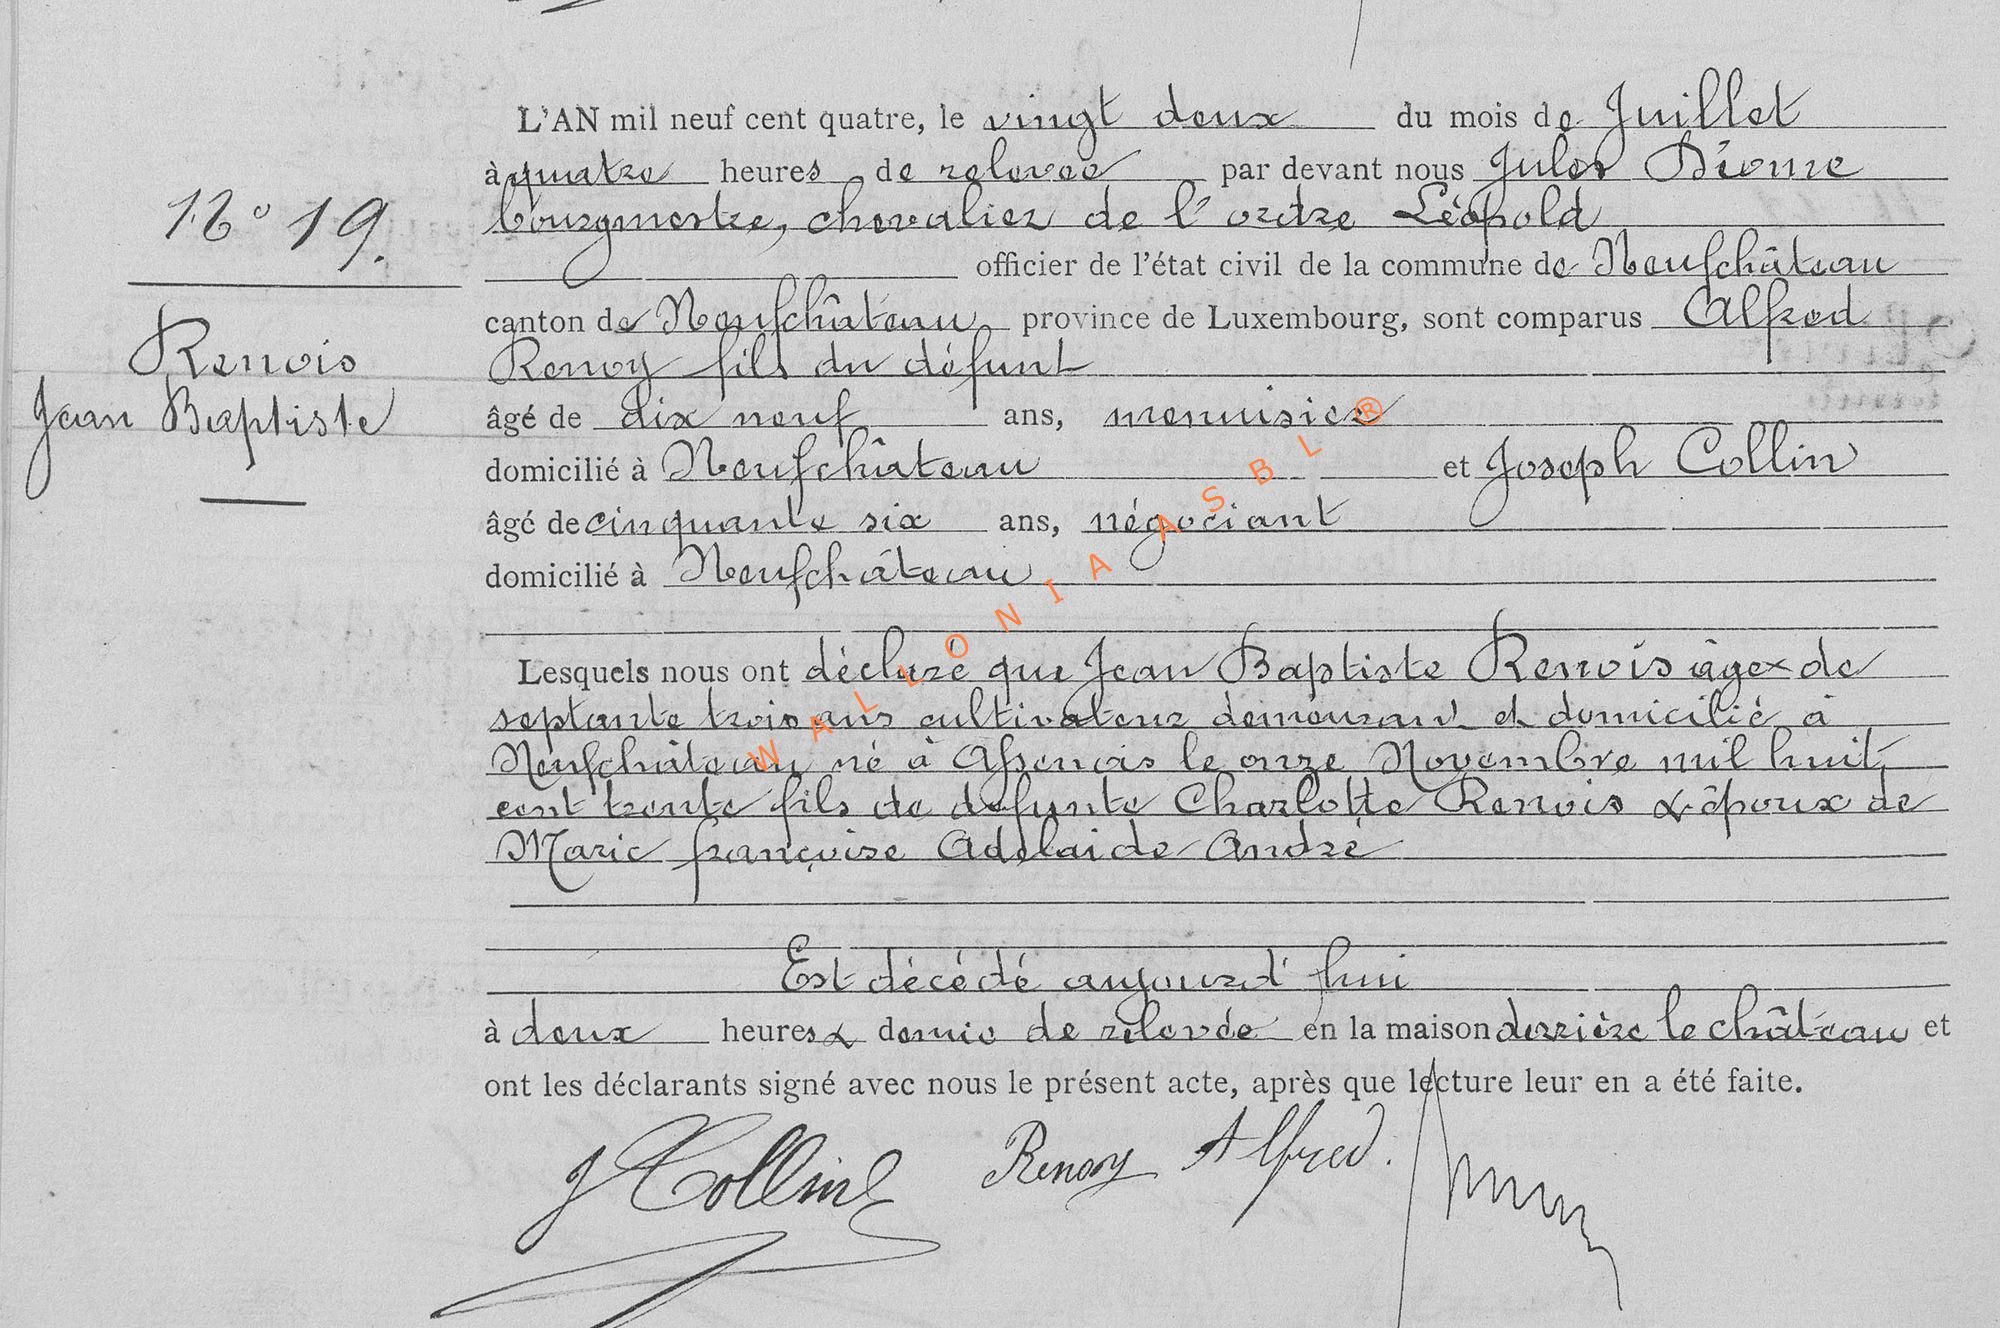 L'AN mil neuf cent quatre, le vingt deux du mois de Juillet
à quatre heures de relevée par devant nous Jules Diome
bourgmestre, chevalier de l'ordre Léopold
officier de l'état civil de la commune de Neufchâteau
N° 19.
canton de Neufchâteau province de Luxembourg, sont comparus Alfred
Renoy fils du défunt
Renois
Jean Baptiste
âgé de dix neuf ans, menuisier
domicilié à Neufchâteau et Joseph Collin
âgé de cinquante six ans, négociant
domicilié à Neufchâteau
Lesquels nous ont déclaré que Jean Baptiste Renois âgé de
septante trois ans cultivateur demeurant et domicilié à
Neufchâteau né à Assenois le onze Novembre mil huit
cent trente fils de défunte Charlotte Renois & époux de
Marie françoise Adelaide André
Est décédé aujourd'hui
à deux heures & demie de relevée en la maison derrière le château et
ont les déclarants signé avec nous le présent acte, après que lecture leur en a été faite.
J Collin Renoy Alfred.
WALLONIA ASBL ®